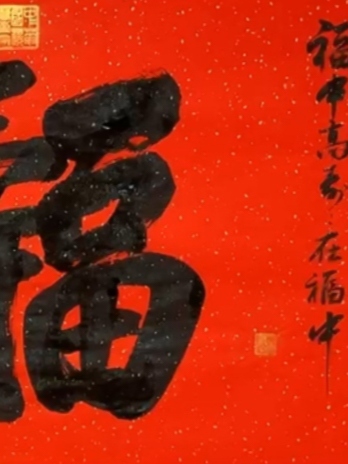 福
福中高寿在福中